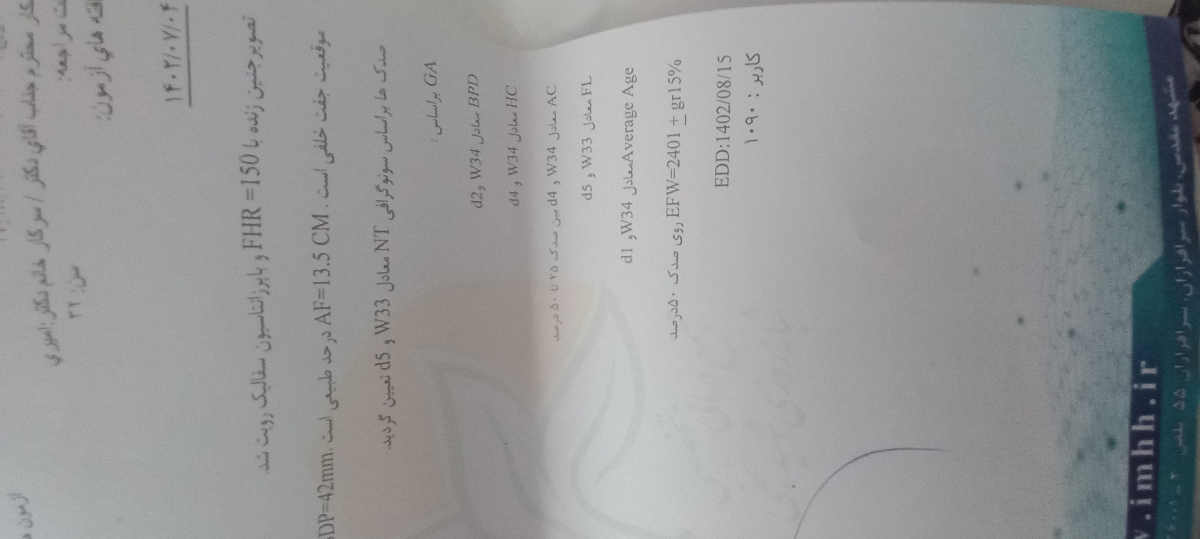 کار محترم جناب آقای دکتر / سرکار خانم دکتر: امیری
ت مراجعه: سن: ۳۲
فته های آزمون:
۱۴۰۲/۰۷/۰۴
تصویر جنین زنده با FHR =150 و با پرزانتاسیون سفالیک رویت شد.
موقعیت جفت خلفی است . AF=13.5 CM در حد طبیعی است .DP=42mm
صدک ها براساس سونوگرافی NT معادل W33 و d5 تعیین گردید.
GA براساس :
BPD معادل W34 و d2
HC معادل W34 و d4
AC معادل W34 و d4 بین صدک ۲۵ تا ۵۰ درصد
FL معادل W33 و d5
Average Age معادل W34 و d1
EFW=2401 ± gr15% روی صدک ۵۰درصد
EDD:1402/08/15
کاربر : ۱۰۹۰
.imhh.ir
مشهد مقدس، بلوار سرافرازان، سرافرازان ۵۵ تلفن